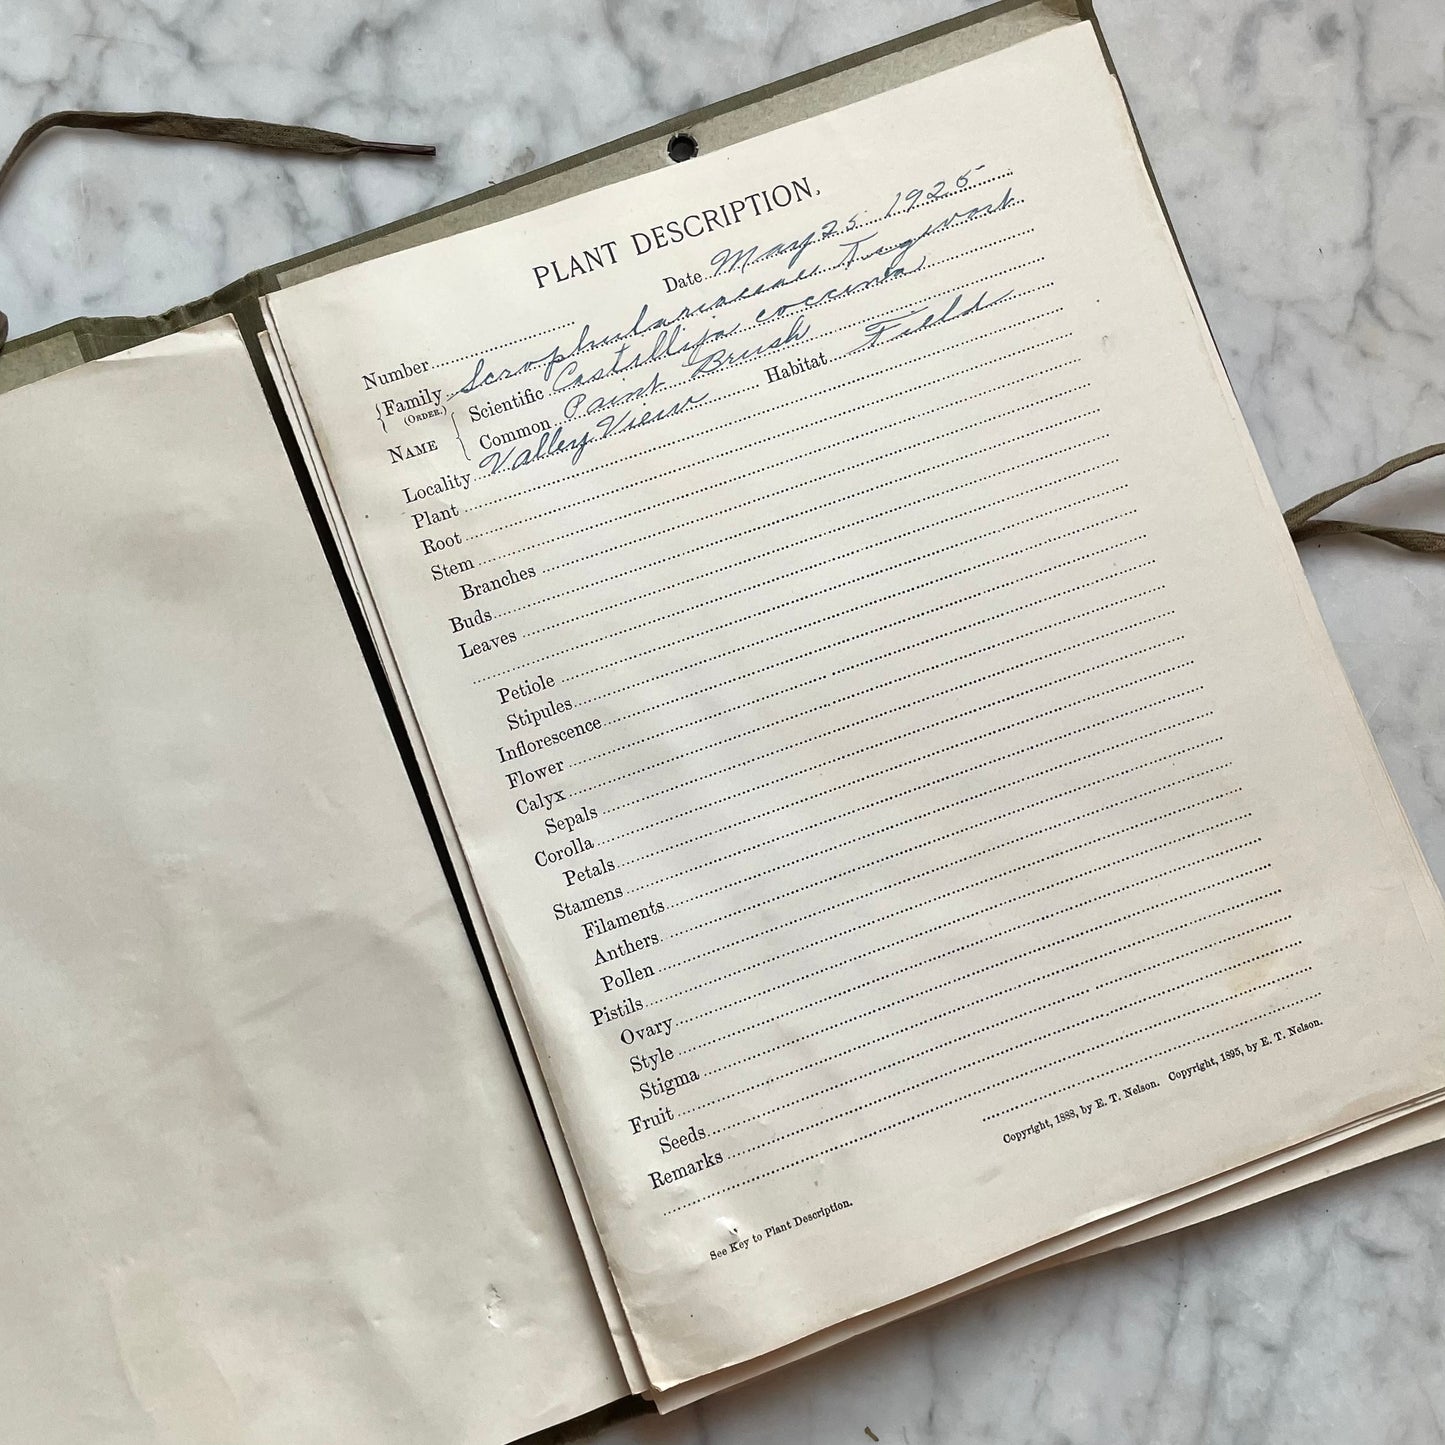 PLANT DESCRIPTION.
Date May 25 1925
Number
Family Scrophulariaceae Figwort
(ORDER.)
NAME
Scientific Castilleja coccinea
Common Paint Brush
Locality Valley View Habitat Field
Plant
Root
Stem
Branches
Buds
Leaves
Petiole
Stipules
Inflorescence
Flower
Calyx
Sepals
Corolla
Petals
Stamens
Filaments
Anthers
Pollen
Pistils
Ovary
Style
Stigma
Fruit
Seeds
Remarks
See Key to Plant Description.
Copyright, 1888, by E. T. Nelson. Copyright, 1895, by E. T. Nelson.